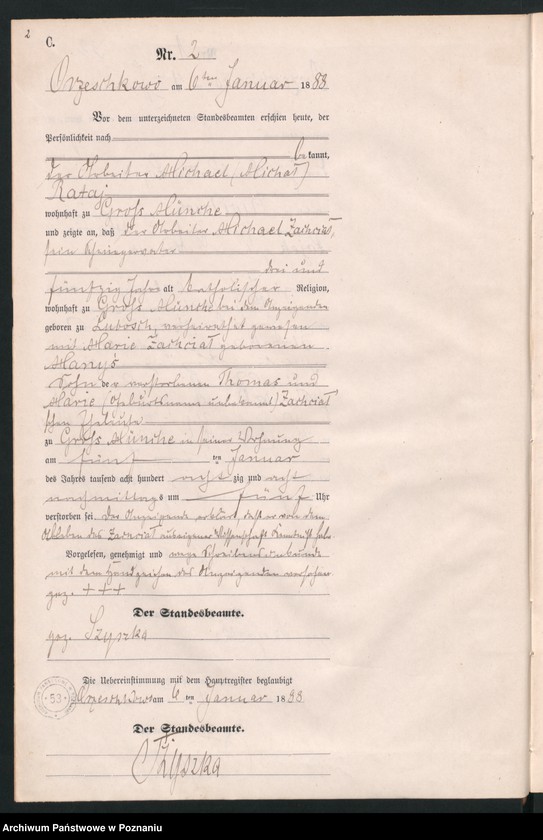 2
C.
Nr. 2
Orzeschkowo am 6ten Januar 1888
Vor dem unterzeichneten Standesbeamten erschien heute, der
Persönlichkeit nach
bekannt,
der Arbeiter Michael (Michał)
Rataj
wohnhaft zu Groß Münche
und zeigte an, daß der Arbeiter Michael Zachciał,
sein Schwiegervater
drei und
fünfzig Jahre alt katholischer Religion,
wohnhaft zu Groß Münche bei dem Anzeigenden
geboren zu Lubosch, verheirathet gewesen
mit Marie Zachciał geborenen
Manyś
Sohn der verstorbenen Thomas und
Marie (Geburtsname unbekannt) Zachciał
schen Eheleute
zu Groß Münche in seiner Wohnung
am fünften Januar
des Jahres tausend acht hundert achtzig und acht
nachmittags um fünf Uhr
verstorben sei. Der Anzeigende erklärt, daß er von dem
Ableben des Zachciał aus eigener Wissenschaft Kenntniß habe
Vorgelesen, genehmigt und wegen Schreibensunkunde
mit dem Handzeichen des Anzeigenden versehen
gez. +++
Der Standesbeamte.
gez. Szyszka
Die Uebereinstimmung mit dem Hauptregister beglaubigt
Orzeschkowo am 6ten Januar 1888
53
Der Standesbeamte.
Szyszka
Archiwum Państwowe w Poznaniu